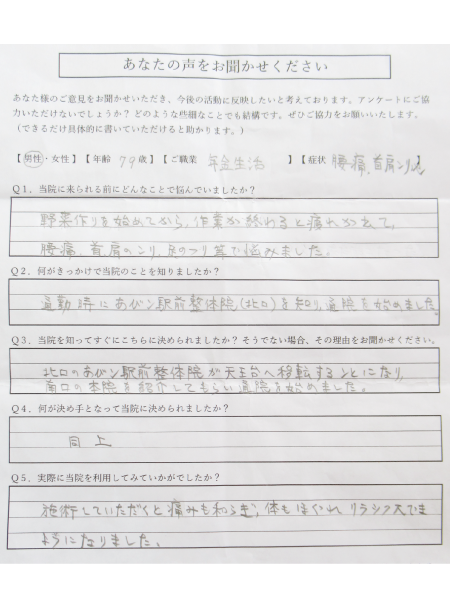 あなたの声をお聞かせください
あなた様のご意見をお聞かせいただき、今後の活動に反映したいと考えております。アンケートにご協
力いただけないでしょうか？どのような些細なことでも結構です。ぜひご協力をお願いいたします。
（できるだけ具体的に書いていただけると助かります。）
【男性・女性】【年齢 79歳】【ご職業 年金生活 】【症状 腰痛、首肩こり】
Q1．当院に来られる前にどんなことで悩んでいましたか？
野菜作りを始めてから、作業が終わると疲れが出て、
腰痛、首肩のこり、足のつり等で悩みました。
Q2．何がきっかけで当院のことを知りましたか？
通勤時にあびこ駅前整体院(北口)を知り、通院を始めました。
Q3．当院を知ってすぐにこちらに決められましたか？そうでない場合、その理由をお聞かせください。
北口のあびこ駅前整体院が天王台へ移転することになり、
南口の本院を紹介してもらい通院を始めました。
Q4．何が決め手となって当院に決められましたか？
同上
Q5．実際に当院を利用してみていかがでしたか？
施術していただくと痛みも和らぎ、体もほぐれリラックスできる
ようになりました。